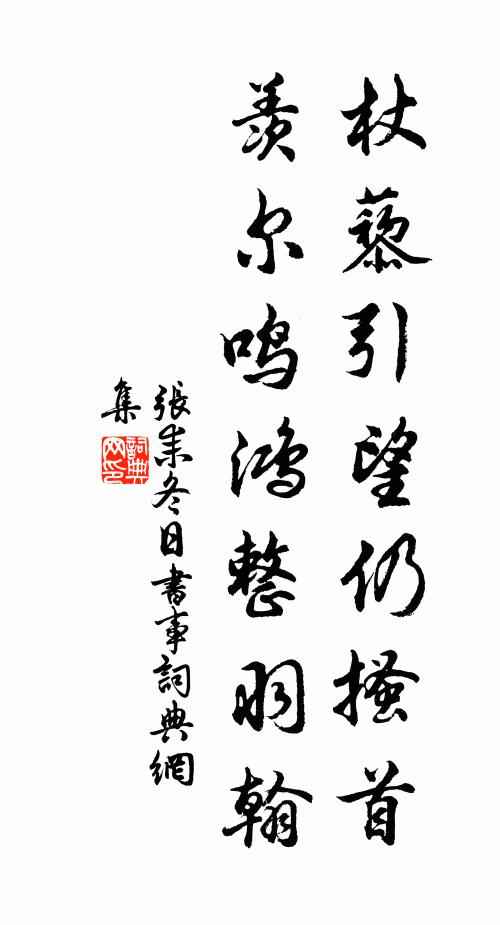 杖藜引望仍搔首
羨尔鳴鴻整羽翰
張耒冬日書事詞典網
集
詞典网印